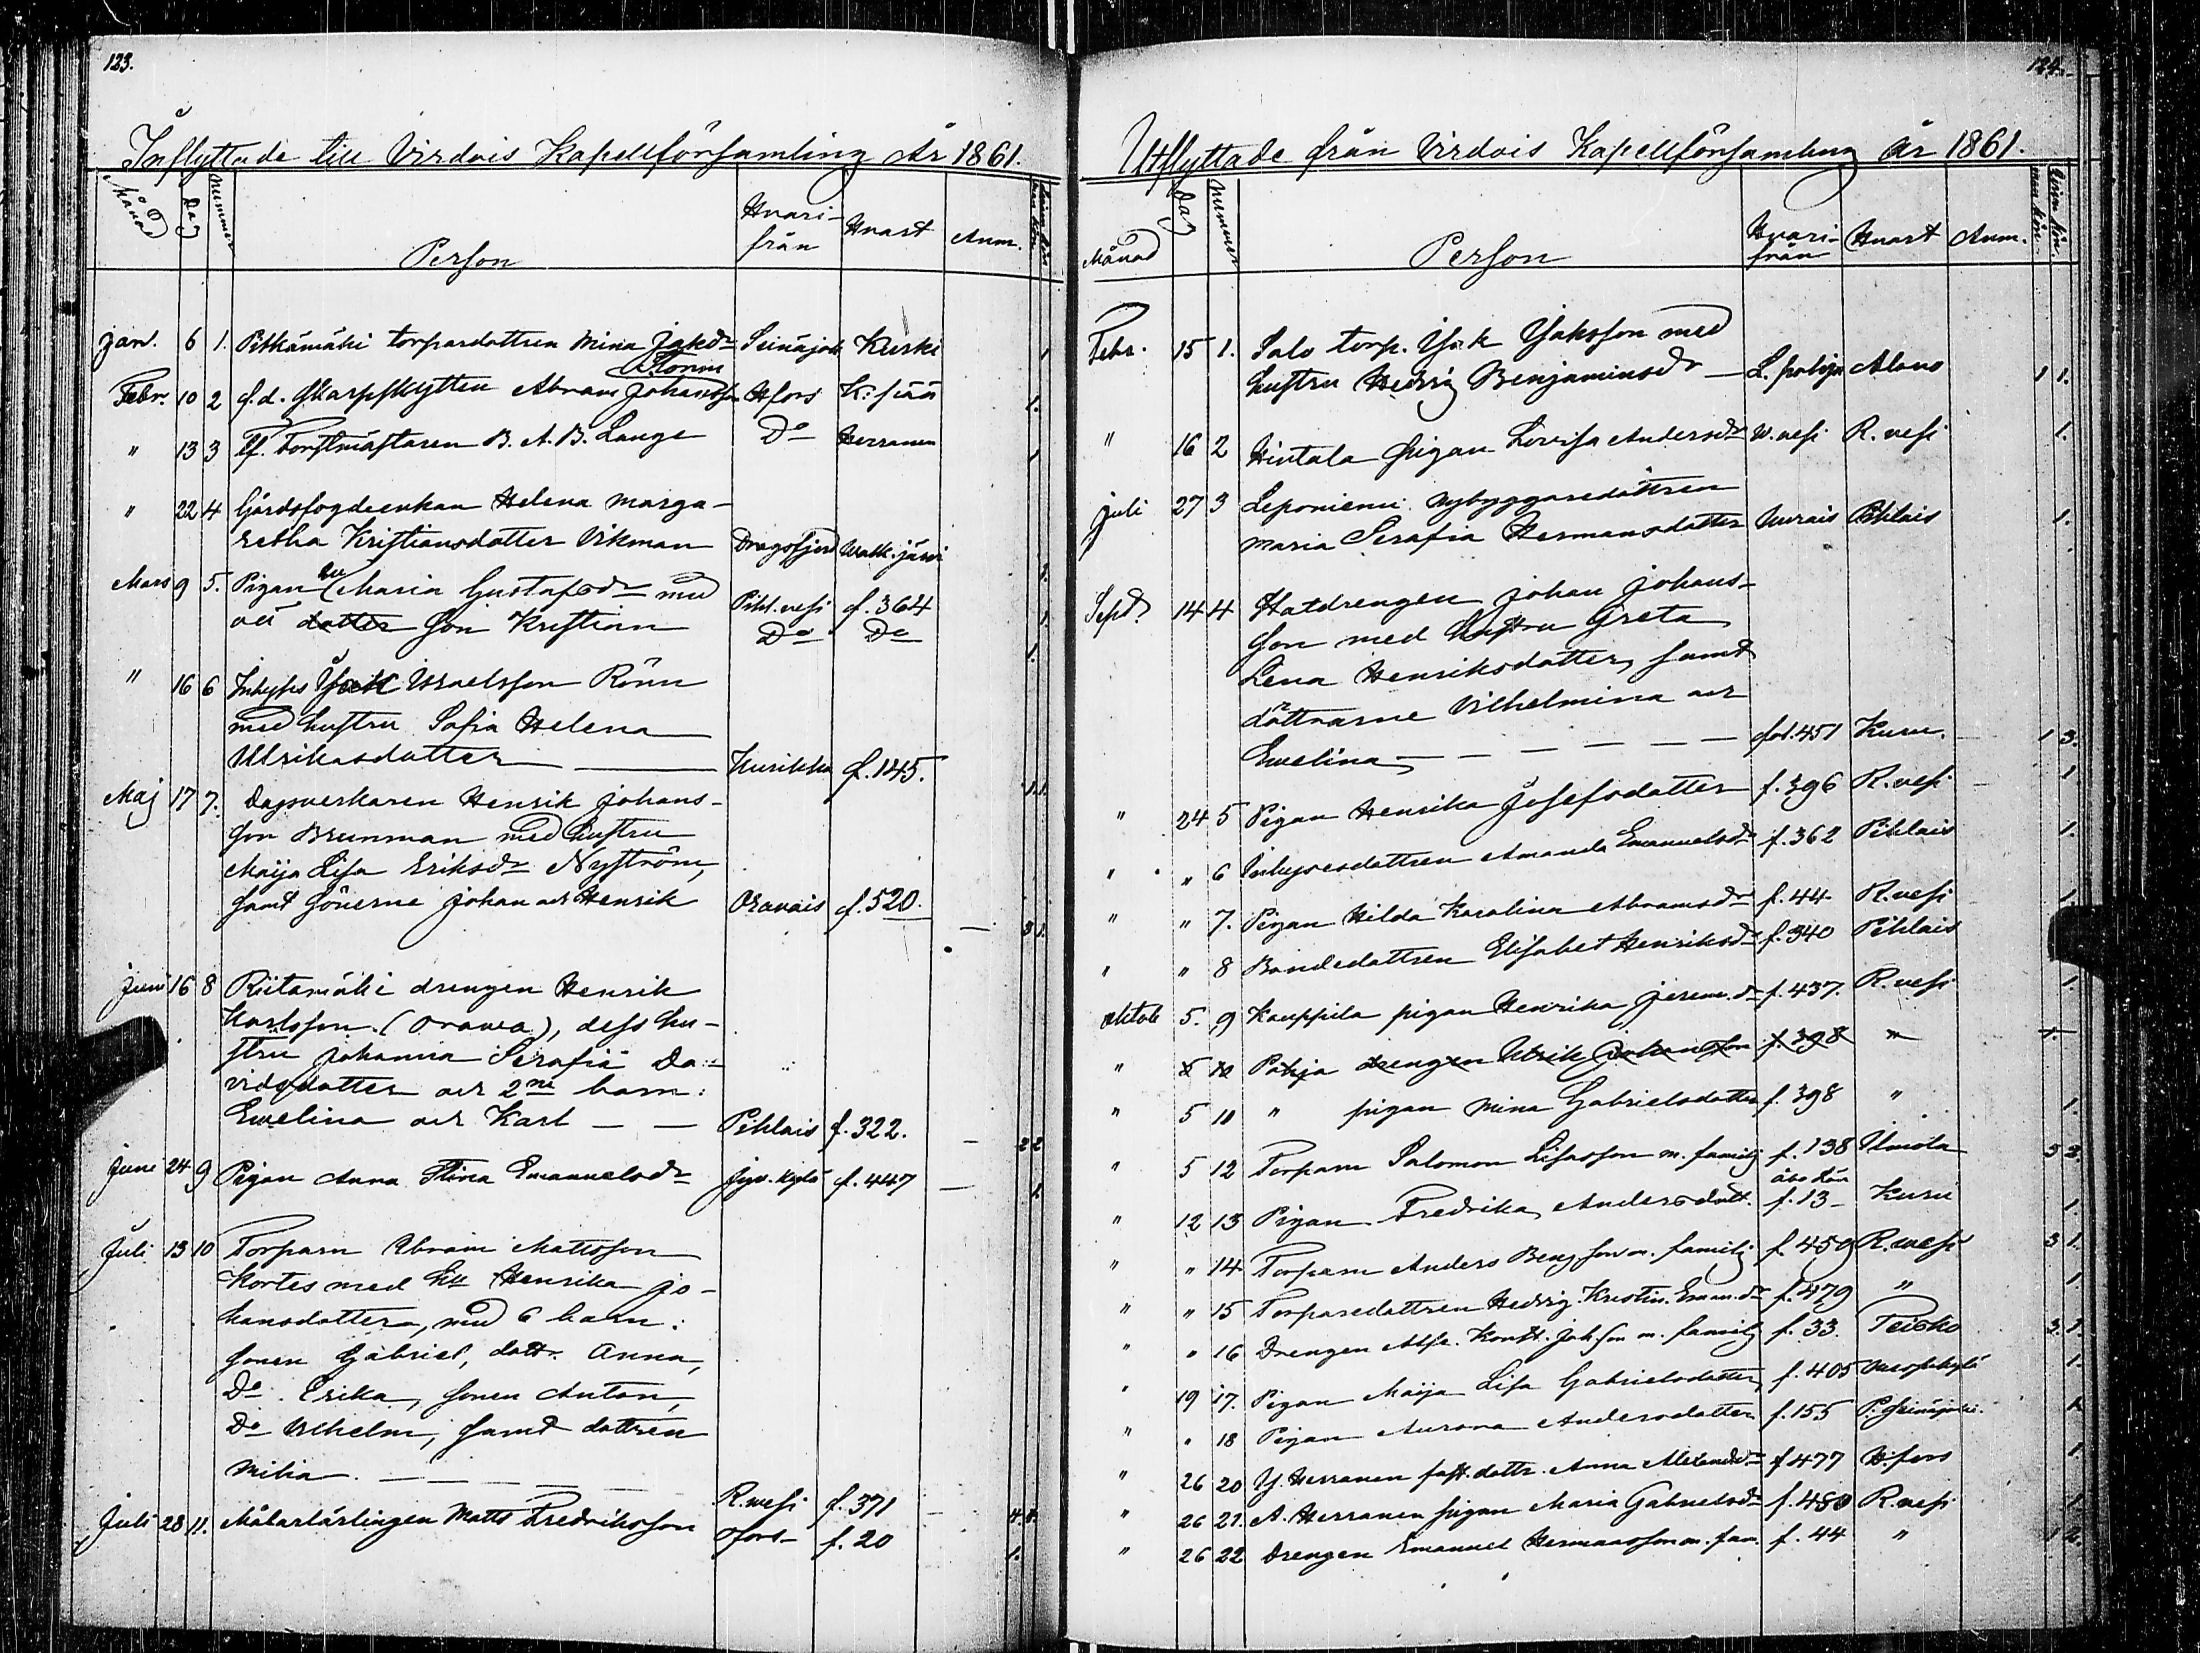 123.
Inflyttade till Virdois Kapellförsamling År 1861.
Månad Dag Nummer Person Hvari-från Hvart Anm. man kön qvin kön
Jan. 6 1. Pitkämäki torpardottren Mina Jakdr Seinäjok Kurki 1
Storm
Febr. 10 2 f.d. Skarpskytten Abram Johansson Hfors 1.
" 13 3 Tf. Forstmästaren B. A. B. Lange Do Herranen 1
" 22 4 Gårdsfogdeenkan Helena Marga-
retha Kristiansdotter Vikman Dragsfjerd Wask.järvi 1.
Mars 9 5. Pigan Maria Gustafsdr med Pihl.vesi f. 364 1.
oä dotter son Kristian Do Do 1.
" 16 6 Inhyses Isak Israelsson Rönn
med hustru Sofia Helena
Ulriksdotter — Kurikka f. 145. 1.1.
Maj 17 7. Dagsverkaren Henrik Johans-
son Brunman med hustru
Maija Lisa Eriksdr Nyström,
samt sönerne Johan och Henrik Oravais f. 520. — 3 1.
Juni 16 8 Riitamäki drengen Henrik
Karlsson (Orawa), dess hu-
stru Johanna Serafia Da-
vidsdotter och 2ne barn:
Ewelina och Karl — — Pihlais f. 322. — 2 2
Juni 24 9 Pigan Anna Stina Emanuelsdr f. 447 — 1.
Juli 13 10 Torparn Abram Mattsson
Kortes med hu Henrika Jo-
hansdotter, med 6 barn:
sonen Gabriel, dottr. Anna,
Do. Erika, sonen Anton,
Do Vilhelm, samt dottren
Milia — — — — R.vesi f. 371 — 4.4.
Juli 28 11. Målarlärlingen Matts Fredriksson f. 20 1.
124.
Utflyttade från Virdois Kapellförsamling år 1861.
Månad Dag Nummer Person Hvari-från Hvart Anm. man kön. Qvin kön.
Febr. 15 1. Salo torp. Isak Isaksson med
hustru Hedvig Benjaminsdr — L. pohja Alavo 1 1.
" 16 2 Hintala pigan Lovisa Andersdr W.vesi R.vesi 1.
Juli 27 3 Leponiemi nybyggaredottren
Maria Serafia Hermansdotter Uurais Pihlais 1.
Sept. 14 4 Statdrengen Johan Johans-
son med hustru Greta
Lena Henriksdotter, samt
döttrarne Vilhelmina och
Ewelina — — — — — fol.451 Kuru. 1 3.
" 24 5 Pigan Henrika Josefsdotter f. 396 R.vesi — 1
" " 6 Inhysesdottren Amanda Emanuelsdr f. 362 Pihlais 1.
" " 7. Pigan Hilda Karolina Abramsdr f. 44 R.vesi 1
" " 8 Bondedottren Elisabet Henriksdr f. 340 Pihlais 1
Oktob 5. 9 Kauppila pigan Henrika Jerem.dr f. 437. R.vesi 1.
" 5 10 Pohja drengen Ulrik Johansson f. 398 " 1.
" 5 11 " pigan Mina Gabrielsdotter f. 398 " 1.
" 5 12 Torparn Salomon Lisasson m. familj f. 138 Ilmola 3 3.
" 12 13 Pigan Fredrika Andersdott. f. 13 Kuru 1.
" " 14 Torparn Anders Bengsson m. familj f. 459 R.vesi 3 1.
" " 15 Torparedottren Hedvig Kristin. Eman.dr f. 479 " 1
" " 16 Drengen Alfr. Konst. Joh.son m. familj f. 33. Teisko 3.1.
" 19 17. Pigan Maija Lisa Gabrielsdotter f. 405 1.
" " 18 Pigan Aurora Andersdotter f. 155 P. Seinäjoki. 1
" 26 20 Y. Herranen fost.dottr. Anna Alexandr.dr f 477 H:fors 1.
" 26 21. A. Herranen pigan Maria Gabrielsdr f. 480 R.vesi 1.
" 26 22 Drengen Emanuel Hermansson m. fam. f. 44 " 1 2.